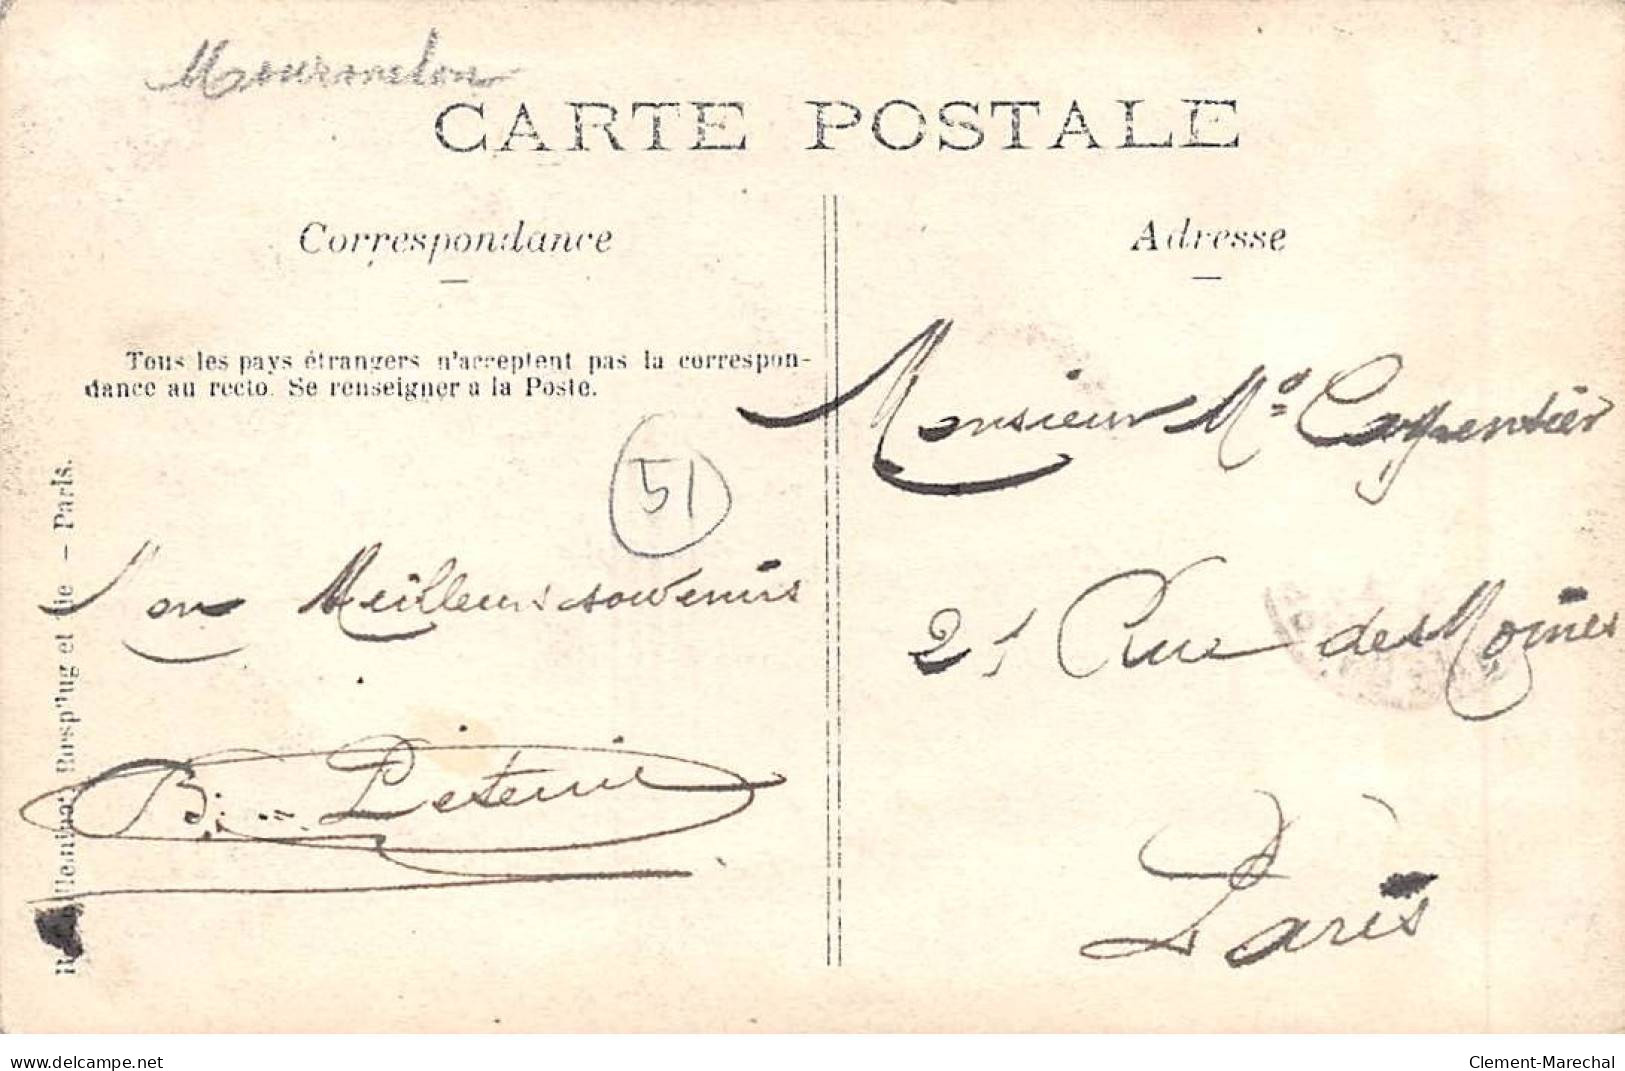 Mourmelon
CARTE POSTALE
Correspondance
Tous les pays étrangers n'acceptent pas la correspon-
dance au recto. Se renseigner à la Poste.
51
Meilleurs souvenirs
B. 
et Cie — Paris.
Adresse
Monsieur Mce Carpentier
21 Rue des Moines
Paris
delcampe.net
Clement-Marechal